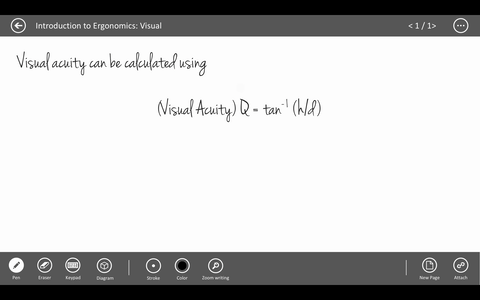 Introduction to Ergonomics: Visual
< 1 / 1>
Visual acuity can be calculated using
(Visual Acuity) Q = tan⁻¹ (h/d)
Pen
Eraser
Keypad
Diagram
Stroke
Color
Zoom writing
New Page
Attach